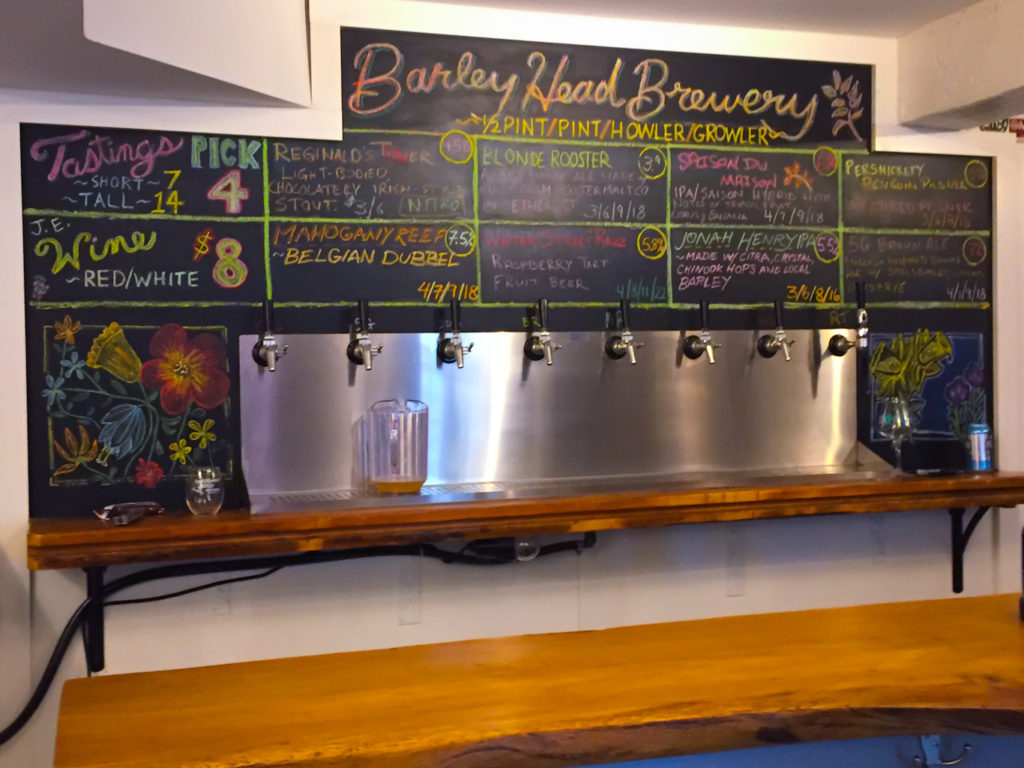 Barley Head Brewery
~1/2 PINT/PINT/HOWLER/GROWLER~
Tastings PICK
~SHORT~ 7
~TALL~ 14
4
REGINALD'S TOWER
LIGHT-BODIED,
CHOCOLATELY IRISH-STYLE
STOUT. $3/6 NITRO
BLONDE ROOSTER
3/6/9/18
SAISON DU
MAISON
IPA/SAISON HYBRID WITH
NOTES OF
CITRUS/BANANA 4/7/9/18
PERSNICKETY
PENGUIN PILSNER
J.E.
Wine $8
~RED/WHITE
MAHOGANY REEF 7.5%
~BELGIAN DUBBEL
4/7/9/18
WATER STREET RAZZ 5.8%
RASPBERRY TART
FRUIT BEER 4/8/11/22
JONAH HENRY IPA 5.5%
~MADE W/ CITRA, CRYSTAL
CHINOOK HOPS AND LOCAL
BARLEY 3/6/8/16
SG BROWN ALE
4/7/9/18